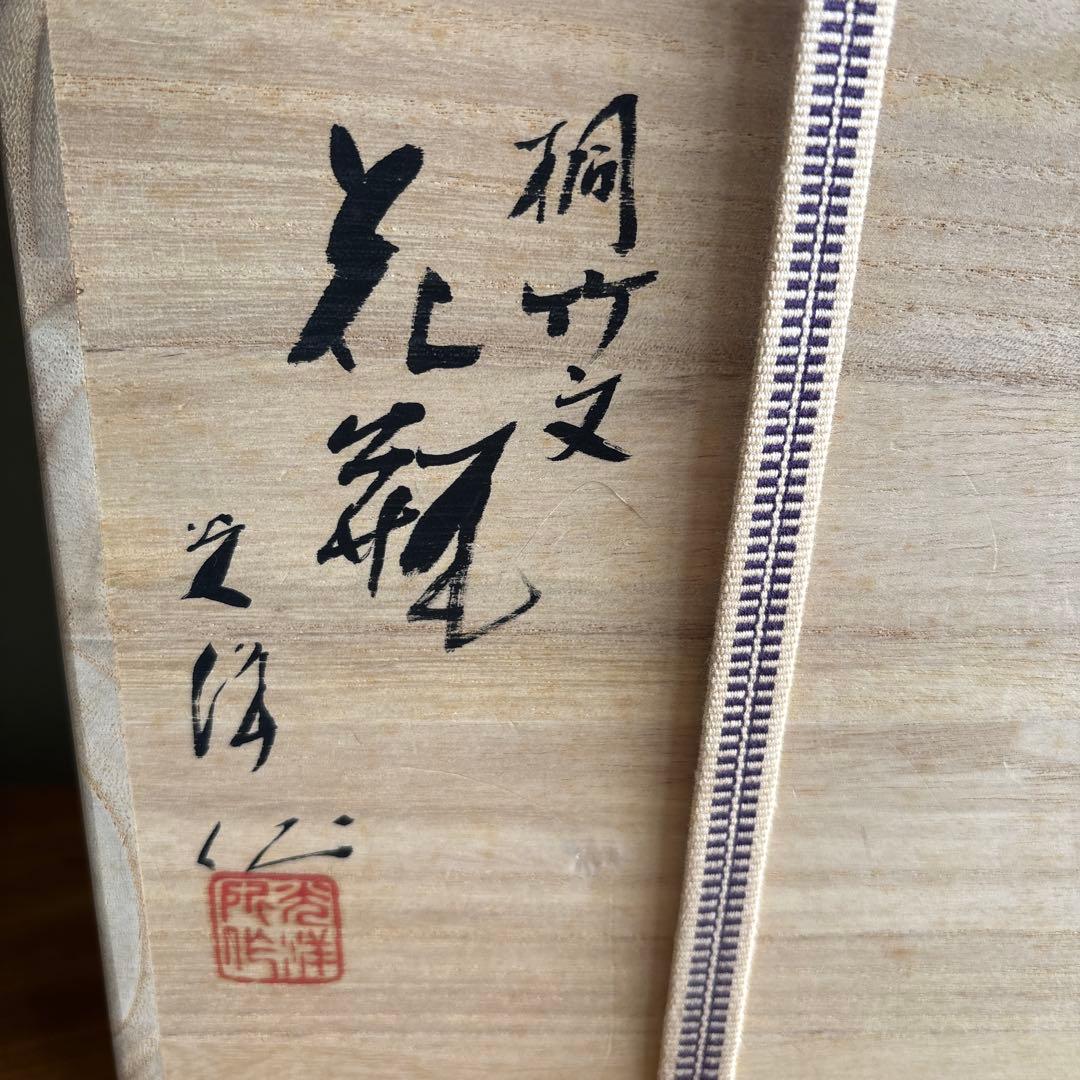 桐竹文
花瓶
光洋作
光洋